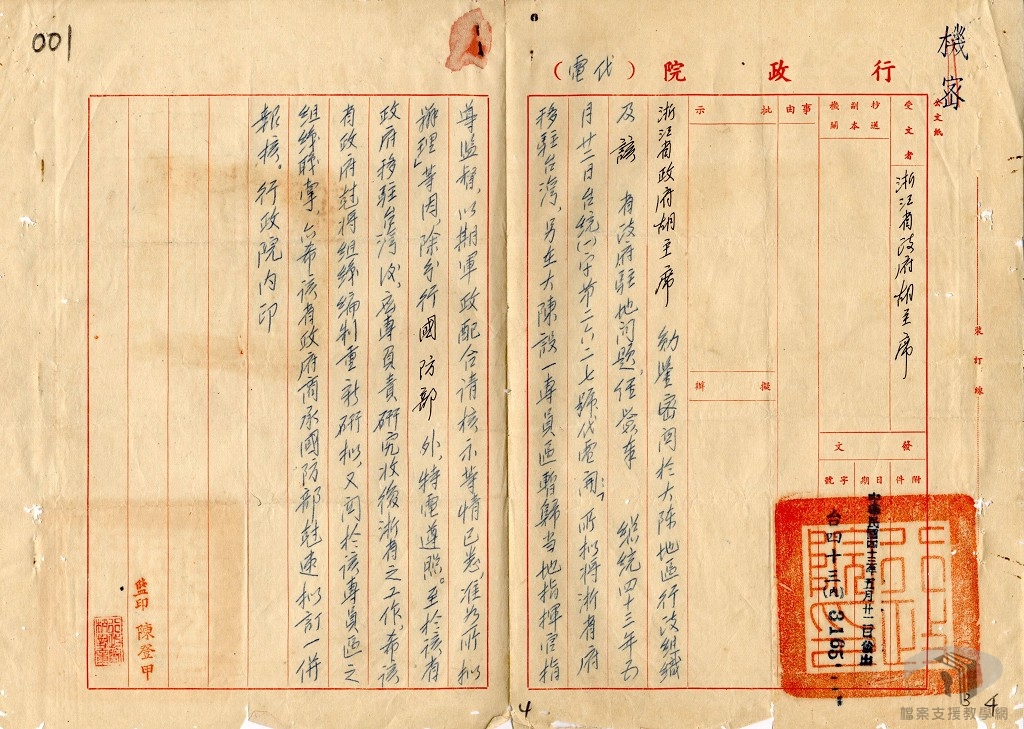 001
機密
行政院（代電）
公文紙
受文者
浙江省政府胡主席
抄送副本機關
事由
批示
擬辦
發文
附件
日期
字號
中華民國四十三年五月廿二日發出
台四十三(內)3165
裝訂線
浙江省政府胡主席　勛鑒密関於大陈地區行政組織
及該　省政府駐地问題，經簽奉　總統四十三年五
月廿二日台統(一)字第二六〇二七號代電開：「所拟將浙省府
移駐台湾，另在大陳設一專員區暫歸当地指揮官指
導監督，以期軍政配合请核示等情已悉准如所拟
辦理」等因，除分行國防部外，特電遵照。至於該省
政府移駐台湾後，应專負責研究收復浙省之工作，希該
省政府尅將組織編制重新研拟，又関於該專員區之
組織職掌，亦希該省政府商承國防部尅速拟訂一併
報核。行政院內印
監印 陳登甲
4
3 4
檔案支援教學網